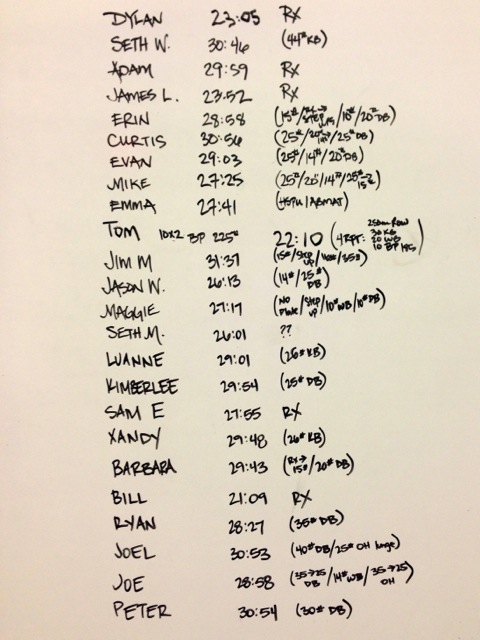 DYLAN 23:05 RX
SETH W. 30:46 (44# KB)
ADAM 29:59 RX
JAMES L. 23:52 RX
ERIN 28:58 (15#/ /10#/20# DB)
CURTIS 30:56 (25#/ /25# DB)
EVAN 29:03 (25#/14#/20# DB)
MIKE 27:25 (25#/20"/14#/
EMMA 27:41 (HSPU/ABMAT)
TOM 10x2 BP 225# 22:10 (4 RFT: 250m ROW
30 KB
20 WB
10 BP
JIM M 31:37 (15#/STEP UP/ /35#)
JASON W. 26:13 (14#/25# DB)
MAGGIE 27:17 (NO PLATE/STEP UP/10# WB/10# DB)
SETH M. 26:01 ??
LUANNE 29:01 (26# KB)
KIMBERLEE 29:54 (25# DB)
SAM E 27:55 RX
XANDY 29:48 (26# KB)
BARBARA 29:43 (RX→15#/20# DB)
BILL 21:09 RX
RYAN 28:27 (35# DB)
JOEL 30:53 (40# DB/25# OH lunge)
JOE 28:58 (35→25 DB/14# WB/35→25 OH)
PETER 30:54 (30# DB)